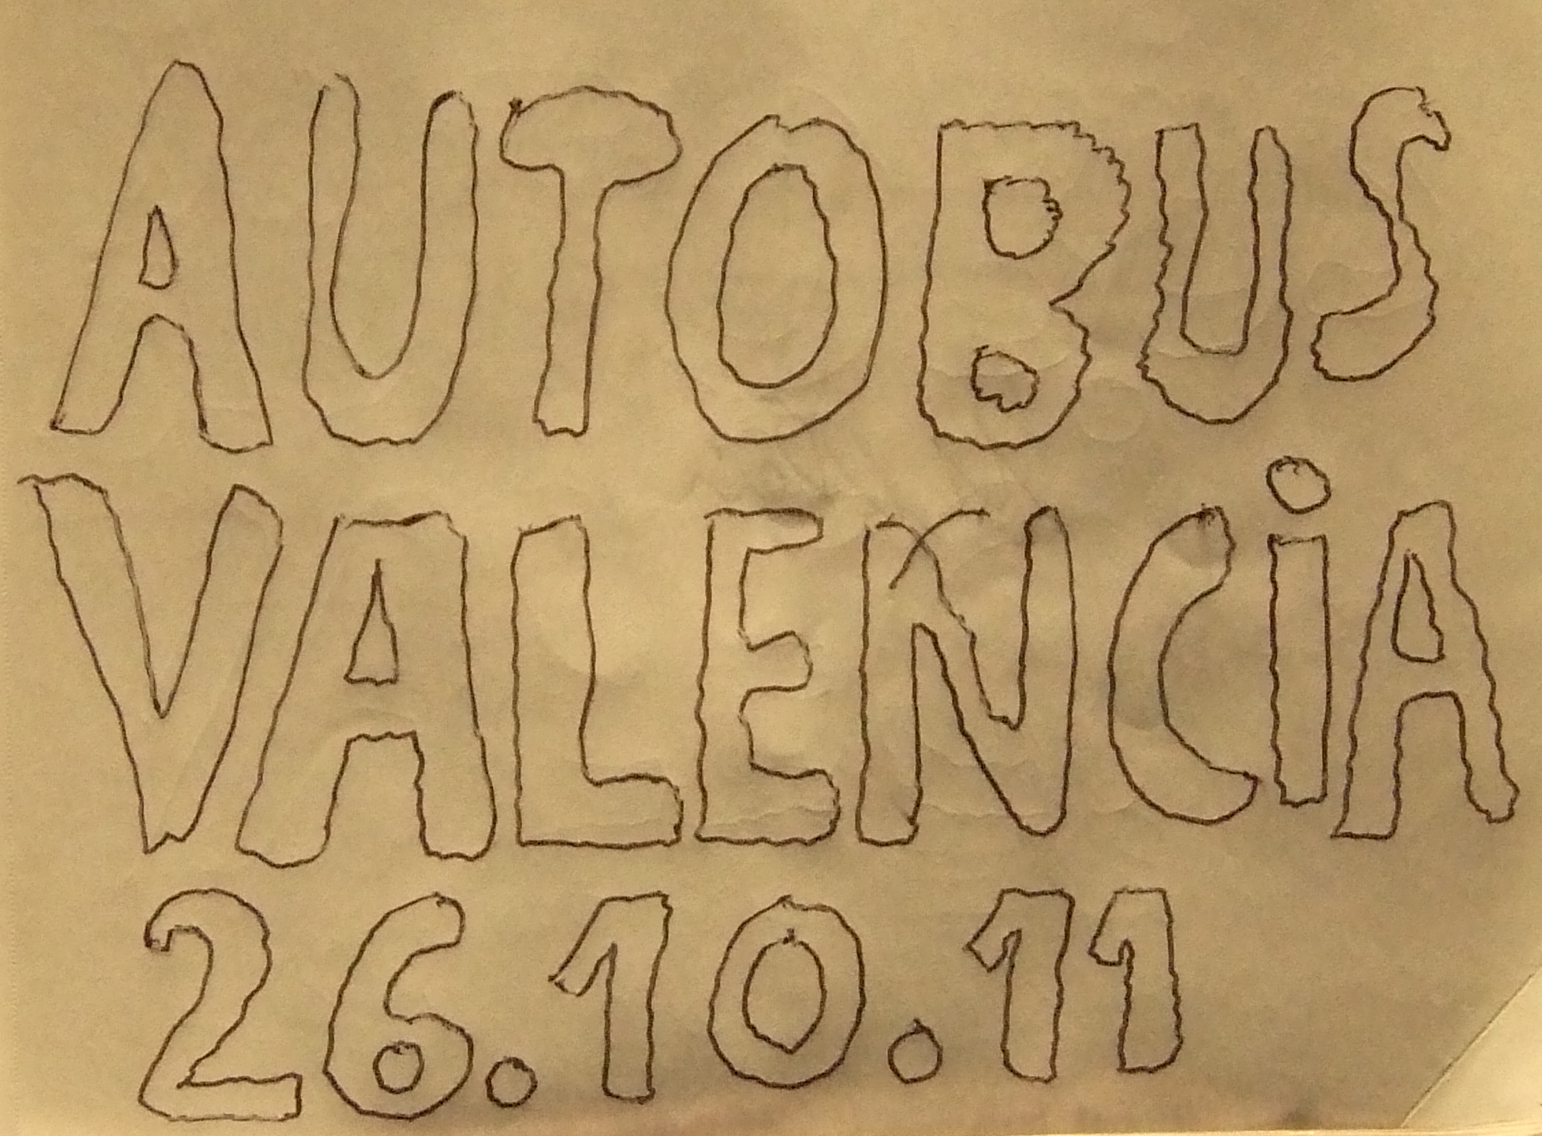 AUTOBUS
VALENCiA
26.10.11